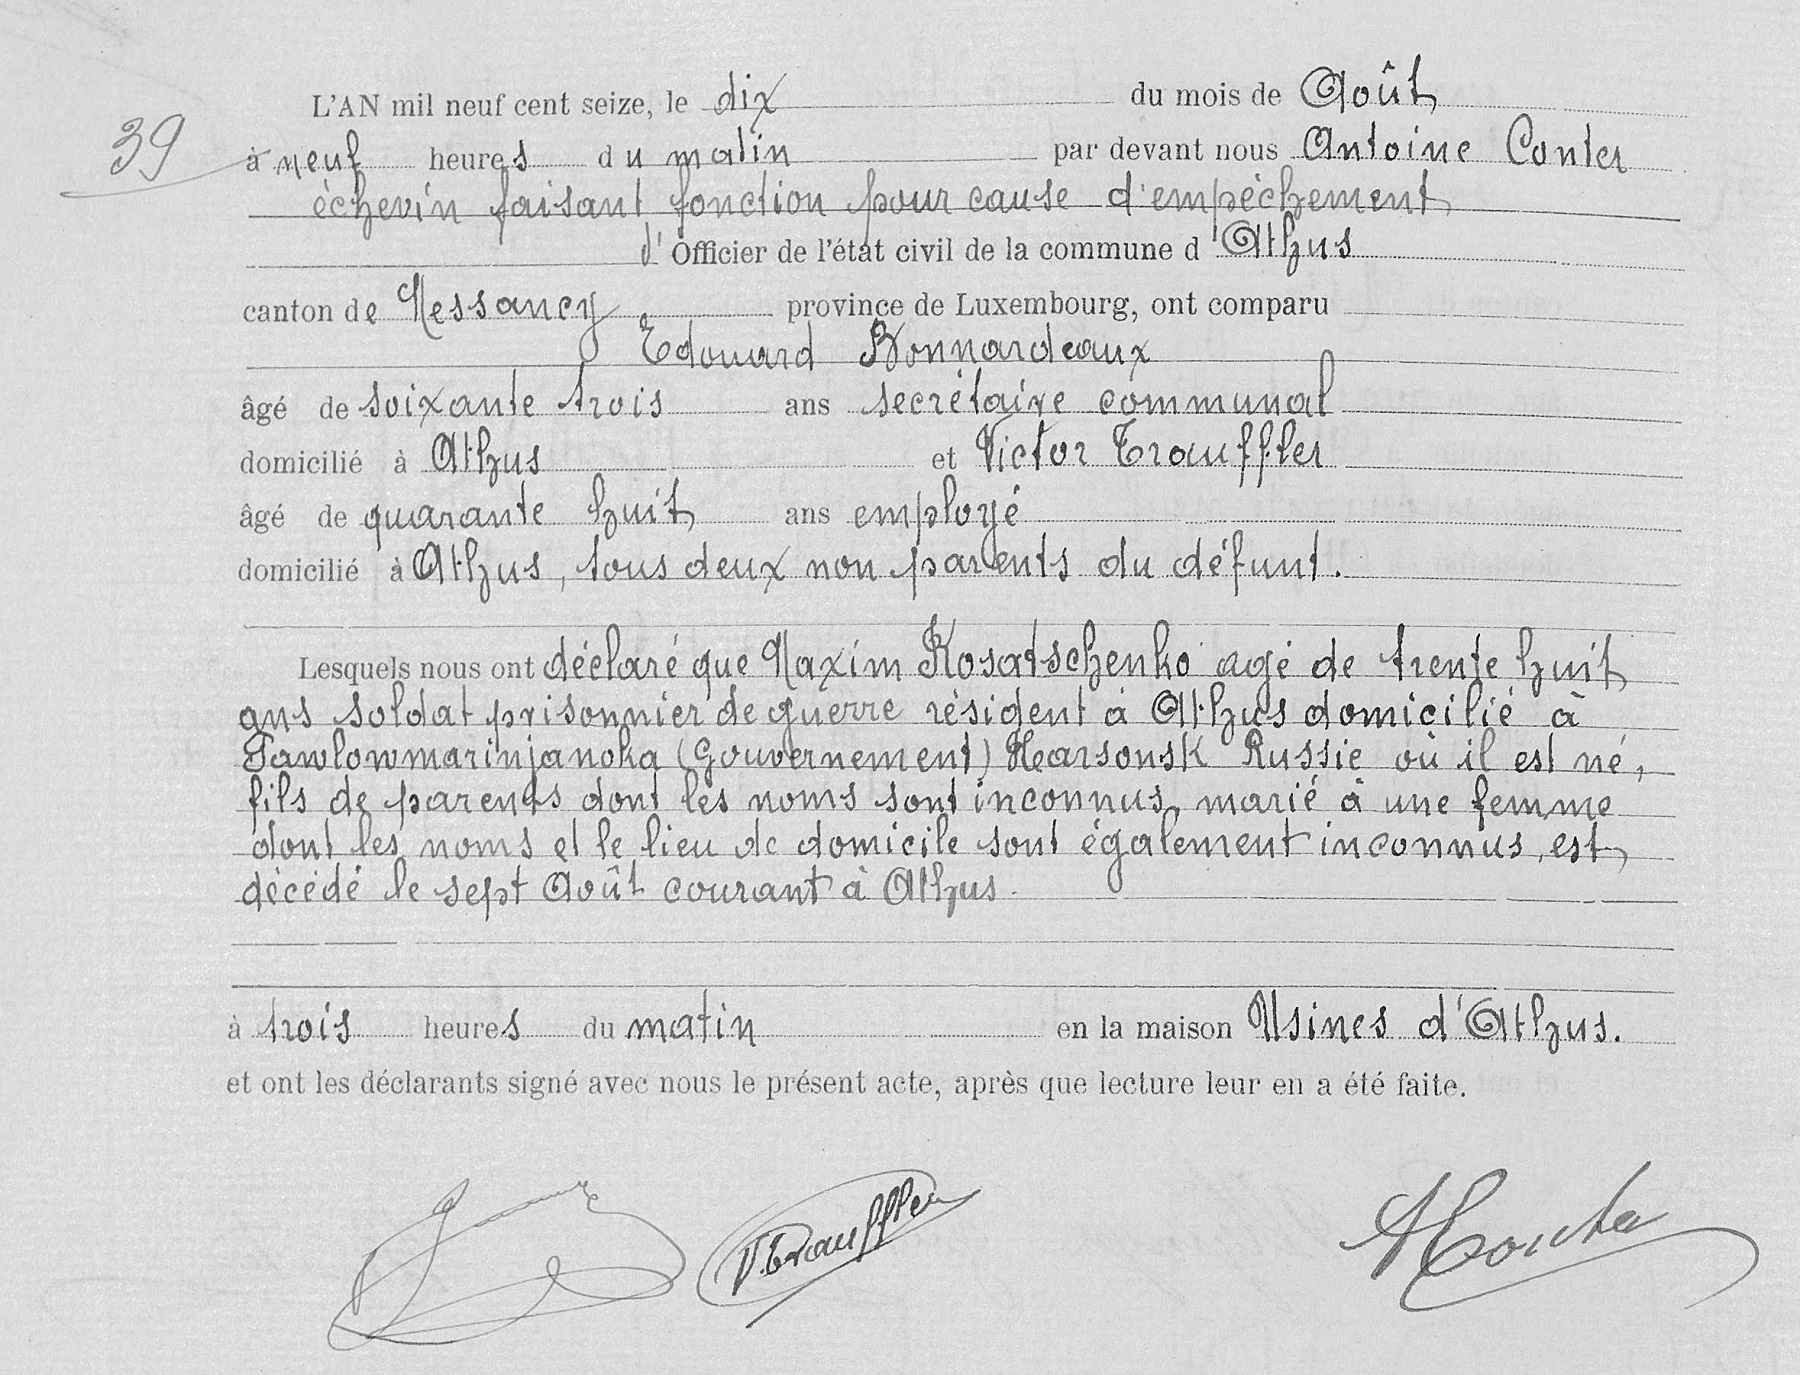 39
L'AN mil neuf cent seize, le dix du mois de Août
à neuf heures du matin par devant nous Antoine Conter
échevin faisant fonction pour cause d'empêchement
d'Officier de l'état civil de la commune d'Athus
canton de Messancy province de Luxembourg, ont comparu
Edouard Bonnardeaux
âgé de soixante trois ans secrétaire communal
domicilié à Athus et Victor Trauffler
âgé de quarante huit ans employé
domicilié à Athus, tous deux non parents du défunt.
Lesquels nous ont déclaré que Maxim Kosatschenko agé de trente huit
ans soldat prisonnier de guerre résident à Athus domicilié à
Pawlowmarinjanoka (Gouvernement) Hearsonsk Russie où il est né,
fils de parents dont les noms sont inconnus, marié à une femme
dont les noms et le lieu de domicile sont également inconnus, est
décédé le sept Août courant à Athus.
à trois heures du matin en la maison Usines d'Athus.
et ont les déclarants signé avec nous le présent acte, après que lecture leur en a été faite.
V. Trauffler